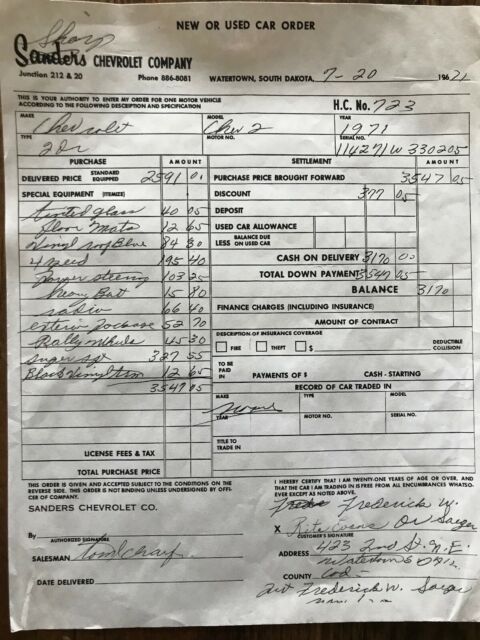 NEW OR USED CAR ORDER
Sharp
Sanders CHEVROLET COMPANY
Junction 212 & 20 Phone 886-8081 WATERTOWN, SOUTH DAKOTA, 7-20 1971
THIS IS YOUR AUTHORITY TO ENTER MY ORDER FOR ONE MOTOR VEHICLE
ACCORDING TO THE FOLLOWING DESCRIPTION AND SPECIFICATION H.C. No. 723
MAKE MODEL YEAR
Chevrolet Chev 2 1971
TYPE MOTOR NO. SERIAL NO.
2Dr 114271W330205
PURCHASE AMOUNT SETTLEMENT AMOUNT
DELIVERED PRICE STANDARD EQUIPPED 2591 01 PURCHASE PRICE BROUGHT FORWARD 3547 05
SPECIAL EQUIPMENT (ITEMIZE) DISCOUNT 377 05
tinted glass 40 05 DEPOSIT
floor mats 12 65 USED CAR ALLOWANCE
vinyl top Blue 84 30 LESS BALANCE DUE ON USED CAR
4 speed 195 40 CASH ON DELIVERY 3170 00
power steering 103 25 TOTAL DOWN PAYMENT 3547 05
heavy Bat 15 80 BALANCE 3170
radio 66 40 FINANCE CHARGES (INCLUDING INSURANCE)
exterior package 52 70 AMOUNT OF CONTRACT
Rally wheels 45 30 DESCRIPTION OF INSURANCE COVERAGE
super spt 327 55 FIRE THEFT $ DEDUCTIBLE COLLISION
Black Vinyl trim 12 65 TO BE PAID IN PAYMENTS OF $ CASH - STARTING
3547 05 RECORD OF CAR TRADED IN
MAKE TYPE MODEL
none
YEAR MOTOR NO. SERIAL NO.
TITLE TO TRADE IN
LICENSE FEES & TAX
TOTAL PURCHASE PRICE
THIS ORDER IS GIVEN AND ACCEPTED SUBJECT TO THE CONDITIONS ON THE
REVERSE SIDE. THIS ORDER IS NOT BINDING UNLESS UNDERSIGNED BY OFFI-
CER OF COMPANY.
SANDERS CHEVROLET CO.
By
AUTHORIZED SIGNATURE
SALESMAN
DATE DELIVERED
I HEREBY CERTIFY THAT I AM TWENTY-ONE YEARS OF AGE OR OVER, AND
THAT THE CAR I AM TRADING IN IS FREE FROM ALL ENCUMBRANCES WHATSO-
EVER EXCEPT AS NOTED ABOVE.
Frederick W.
X Rita Evans Or Saeger
CUSTOMER'S SIGNATURE
ADDRESS 423 2nd St. N.E.
Watertown S
COUNTY Cod
Frederick W. Saeger